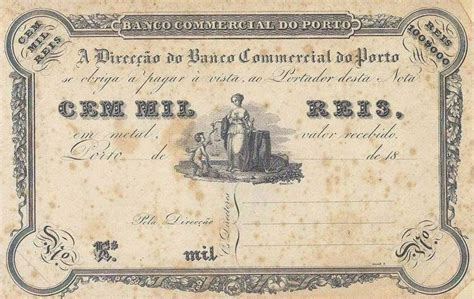 BANCO COMMERCIAL DO PORTO
CEM MIL REIS
REIS 100$000
A Direcção do Banco Commercial do Porto
se obriga a pagar á vista, ao Portador desta Nota
CEM MIL REIS,
em metal, valor recebido.
Porto de de 18
Pela Direcção
O Director
Nº. Rs. mil Nº.